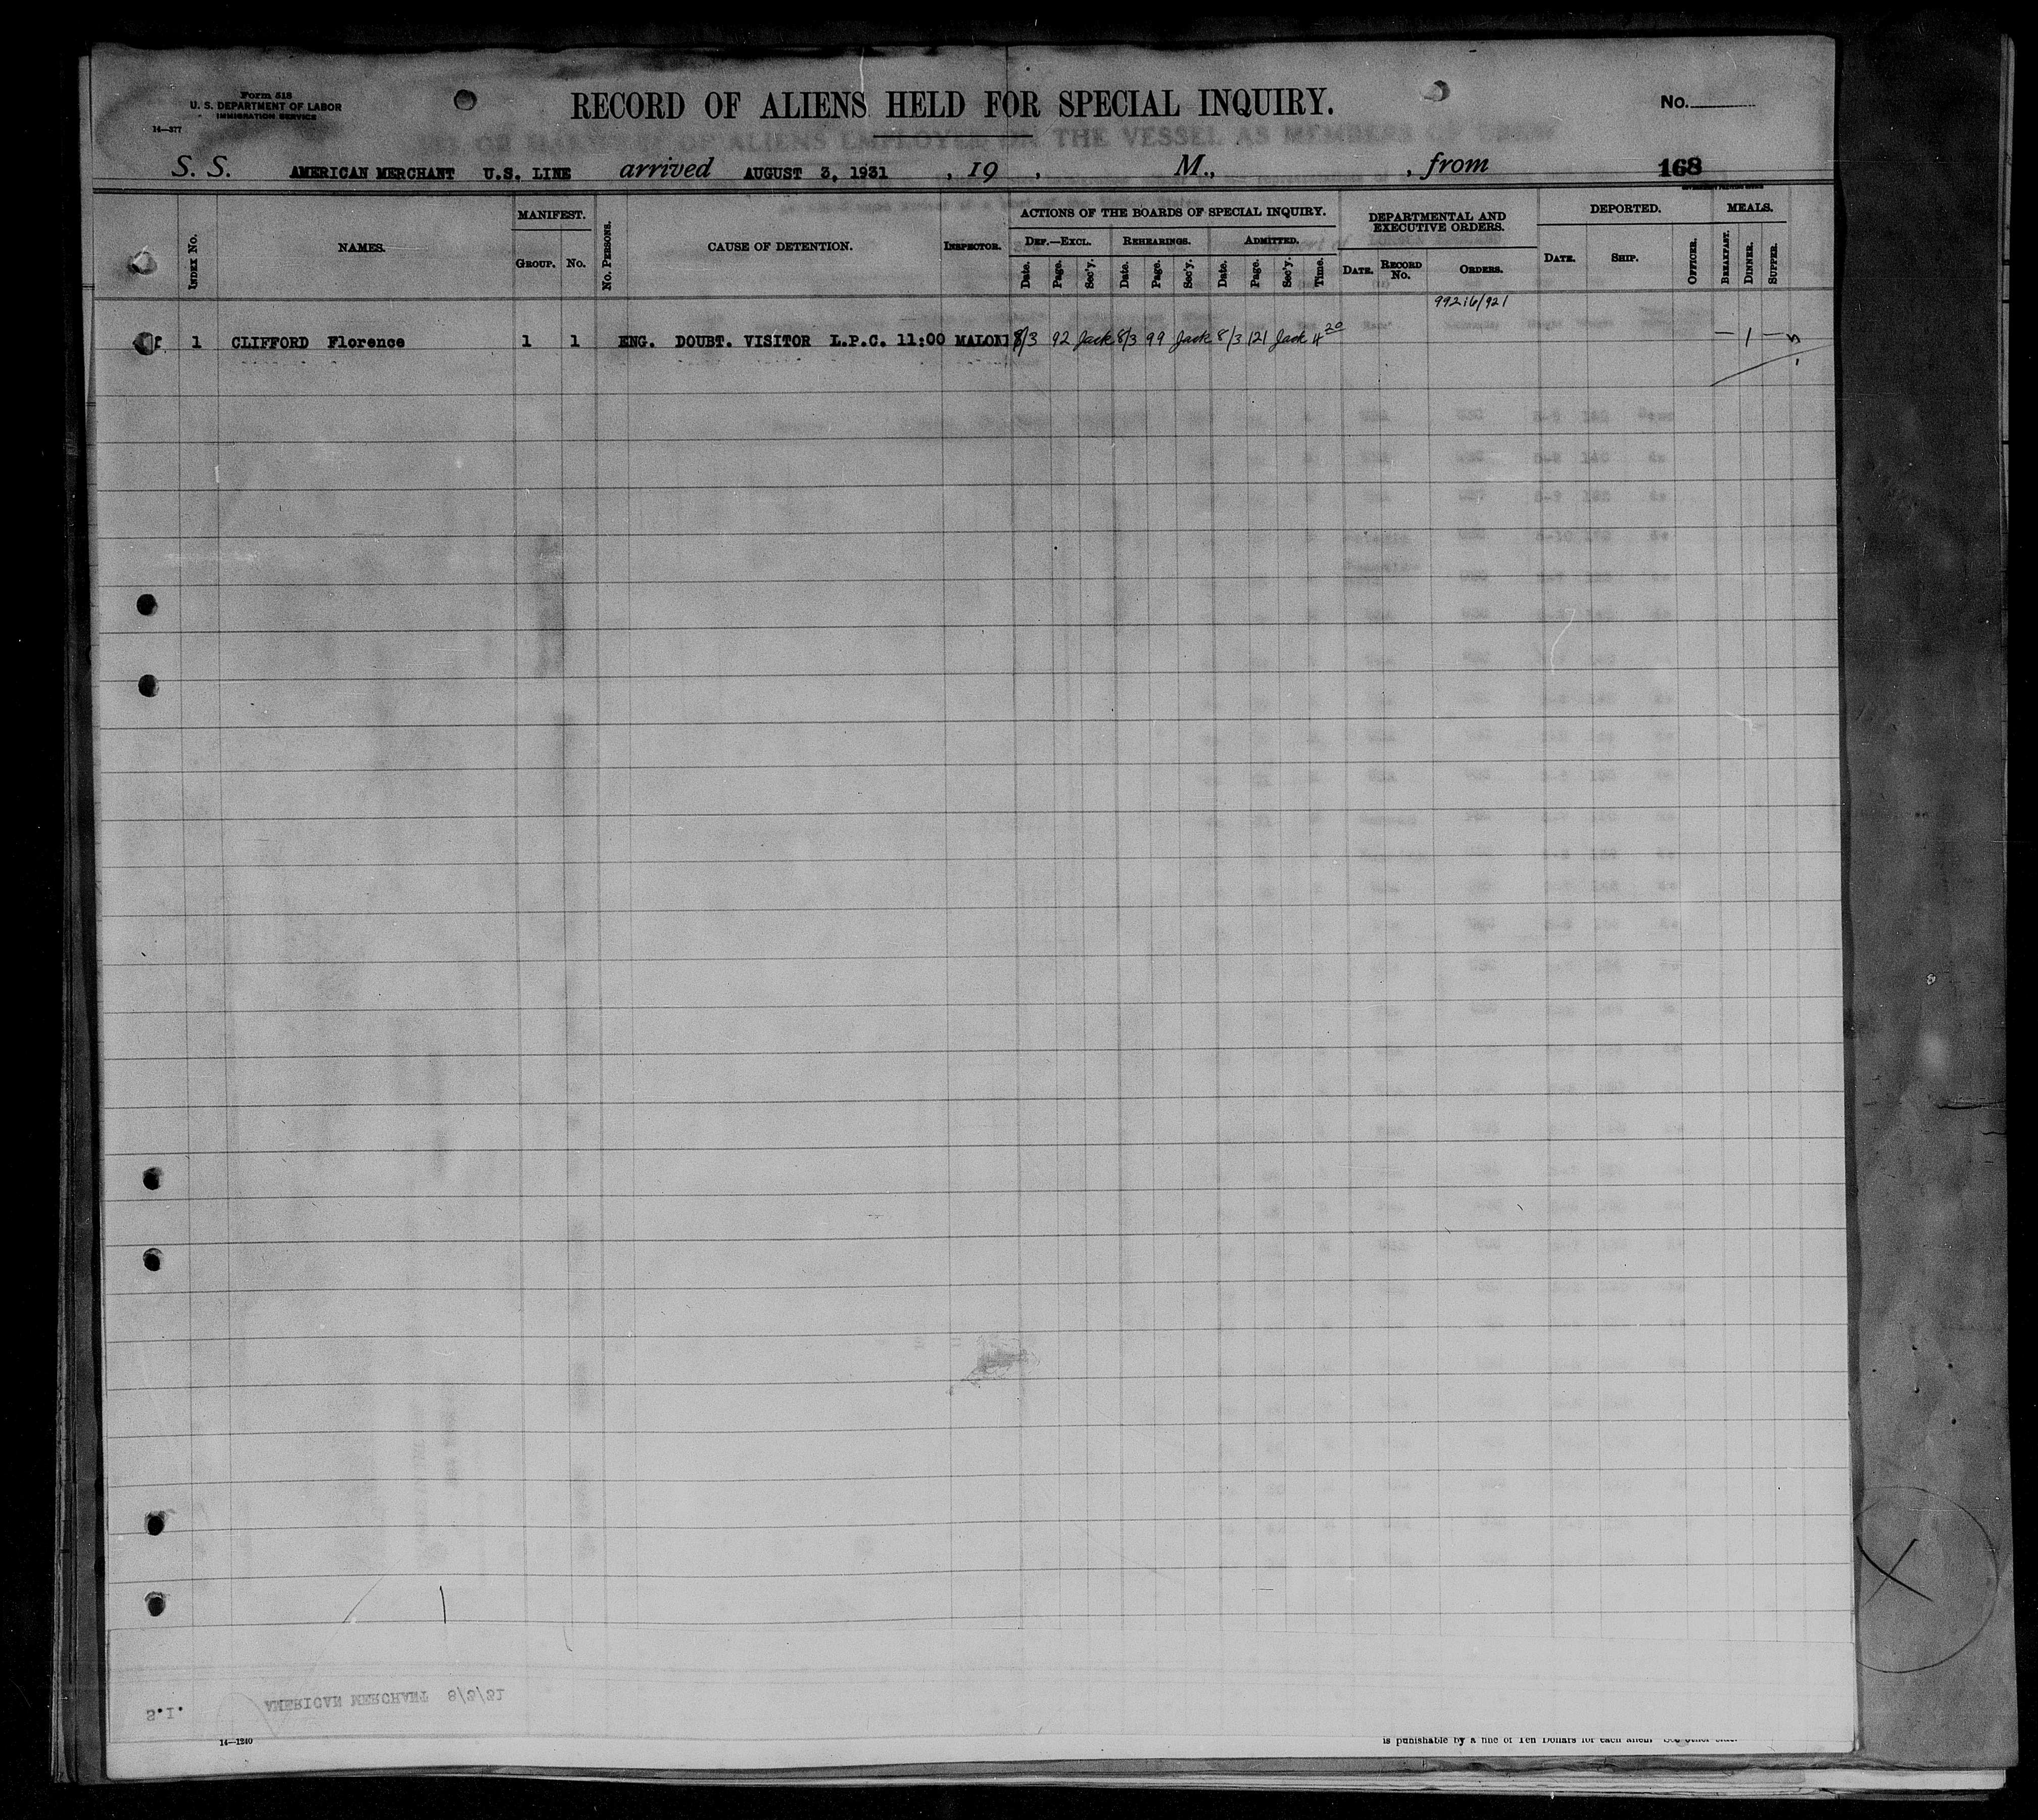 Form 518
U. S. DEPARTMENT OF LABOR
IMMIGRATION SERVICE
14—377
RECORD OF ALIENS HELD FOR SPECIAL INQUIRY.
No.
S. S. AMERICAN MERCHANT U.S. LINE arrived AUGUST 3, 1931 , 19 , M., , from 168
INDEX No. NAMES. MANIFEST. GROUP. No. No. PERSONS. CAUSE OF DETENTION. INSPECTOR. ACTIONS OF THE BOARDS OF SPECIAL INQUIRY. DEF.—EXCL. Date. Page. Sec'y. REHEARINGS. Date. Page. Sec'y. ADMITTED. Date. Page. Sec'y. Time. DEPARTMENTAL AND EXECUTIVE ORDERS. DATE. RECORD No. ORDERS. DEPORTED. DATE. SHIP. OFFICER. MEALS. BREAKFAST. DINNER. SUPPER.
99216/921
f 1 CLIFFORD Florence 1 1 ENG. DOUBT. VISITOR L.P.C. 11:00 MALON 8/3 92 Jack 8/3 99 Jack 8/3 121 Jack 4 20 — 1 —
S.I. AMERICAN MERCHANT 8/3/31
14—1240
is punishable by a fine of Ten Dollars for each alien. See other side.